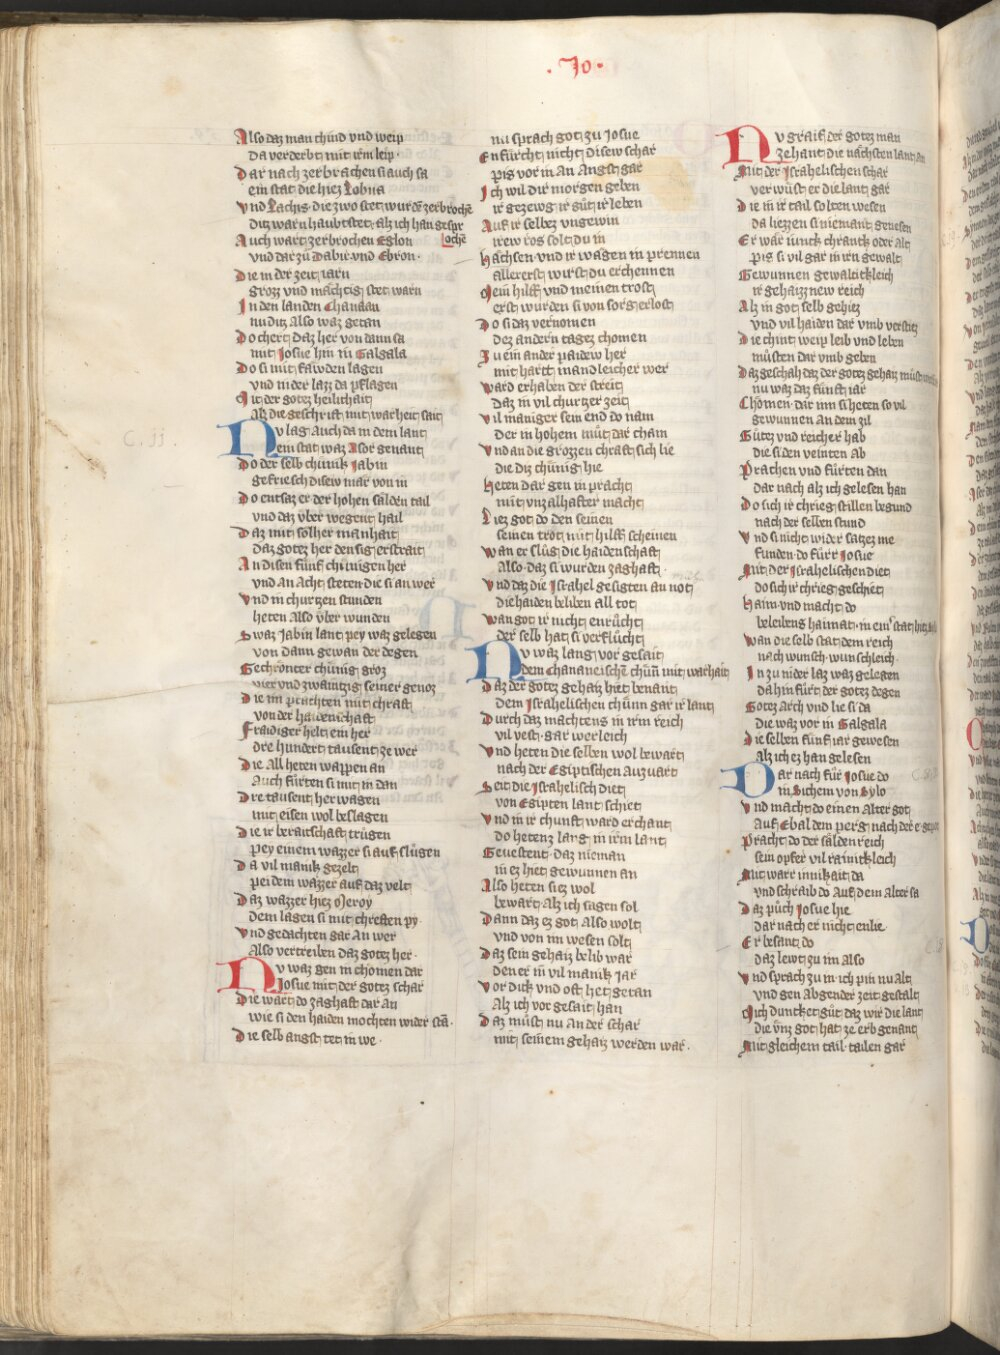 · Jo ·
Also daz man chind vnd weip
da verderbt mit irm leip ·
Dar nach zerbrachen si auch sa
ein stat die hiez Lobna
vnd Lachis · die zwo stet wurdē zerbrochē
ditz warn haubtstet · alz ich han gespr
ochē
Auch wart zerbrochen Eglon
vnd dar zů Dabir · vnd Ebron ·
Die in der zeit iarn
grozz vnd måchtig stet warn
In den landen Chanaan
nu ditz Also waz getan
Do chert daz her von dann sa
mit Josue hin in Galgala
Do si mit frawden lagen
vnd nider lazz da pflagen
Mit der gotez heilichait
Alz die geschrift mit warheit sait
Nv lag auch da in dem lant
ein stat waz Asor genant
Do der selb chůnik Jabin
gefriesch disew mår von in
Do entsaz er der hohen sålden tail
vnd daz vber wegent hail
Daz mit solher manhait
daz gotez her den sig erstrait
An disen fůnf chunigen her
vnd an Acht steten die si an wer
Vnd in churtzen stunden
heten also vber wunden
Swaz Jabin lant pey waz gelegen
von dann gewan der degen
Gechronter chůnig groz
vier vnd zwaintzig seiner genoz
Die im prachten mit chraft
von der haidenschaft
Fraidiger helt ein her
dre hundert tausent ze wer
Die All heten wappen an
Auch fůrten si mit in dan
Dre tausent her wagen
mit eisen wol beslagen
Die ir beraitschaft trůgen
pey einem wazzer si auf slůgen
Da vil manik gezelt
pei dem wazzer auf daz velt
Daz wazzer hiez Meroy
dem lagen si mit chreften py ·
Vnd gedachten gar an wer
Also vertreiben daz gotez her ·
Nv waz gen in chomen dar
Josue mit der gotez schar
Die wart do zaghaft dar an
wie si den haiden mochten wider stā ·
Die selb angst tet in we ·
nu sprach got zu Josue
Enfůrcht nicht disew schar
pis vor in an Angst gar
Ich wil dir morgen geben
ir gezewg ir gůt ir leben
Auf ir selbez vngewin
irew ros solt du in
Håchsen · vnd ir wågen in prennen
allererst wirst du erchennen
Mein hilff vnd meinen trost
erst wurden si von sorg erlost
Do si daz vernomen
dez andern tagez chomen
Zu ein ander paidew her
mit hartt manleicher wer
Ward erhaben der streit
daz in vil churtzer zeit
Vil maniger sein end do nam
der in hohem můt dar cham
Vnd an die grozzen chraft sich lie
die diz chůnig hie
Heten dar gen in pracht
mit vnzalhafter macht
Liez got do den seinen
seinen trost mit hilff scheinen
Wan er slůg die haidenschaft
Also · daz si wurden zaghaft ·
Vnd daz die Israhel gesigten an not
die haiden beliben all tot
Wan got ir nicht enrůcht
der selb hat si verflůcht
Nv waz lang vor gesait
dem chananeischē chůnn mit warhait
Daz der gotez gehaiz hiet benant
dem Israhelischen chůnn gar ir lant
Durch daz machtens in irm reich
vil vest · gar werleich
Vnd heten die selben wol bewart
nach der Egiptischen auzvart
Seit die Israhelisch diet
von Egipten lant schiet
Vnd in ir chunft ward erchant
do hetenz lang in irm lant
Gevestent · daz nieman
in ez hiet gewunnen an
Also heten siez wol
bewart alz ich sagen sol
Dann daz ez got also wolt
vnd von im wesen solt
Daz sein gehaiz belib war
den er in vil manik Jar
Vor dick vnd oft het getan
Alz ich vor gesait han
Daz můst nu an der schar
mit seinem gehaiz werden war ·
Nv graif der gotez man
zehant die nåchsten lant an
Mit der Israhelischen schar
verwůst er die lant gar
Die in ir tail solten wesen
da liezzen si niemant genesen
Er wår iunck chranck oder alt
pis si vil gar in irn gewalt
Gewunnen gewaltichleich
ir gehaizznew reich
Alz in got selb gehiez
vnd vil haiden dar vmb verstiez
Die chint weip leib vnd leben
můsten dar vmb geben
Daz geschah daz der gotez gehaiz můst
nu waz daz fůnft iar
Chomen · dar inn si heten so vil
gewunnen an dem zil
Gůtez vnd reicher hab
die si den veinten ab
Prachen vnd fůrten dan
dar nach alz ich gelesen han
Do sich ir chrieg stillen begund
nach der selben stund
Vnd si nicht wider satzez me
funden · do fůrt Josue
Mit der Israhelischen diet
do sich ir chrieg geschiet
Haim vnd macht do
beleibens haimat · in ein stat
Wan die selb stat dem reich
nach wunsch · wunschleich ·
In zu nider laz waz gelegen
dahin fůrt der gotez degen
Gotez Arch vnd lie si da
die waz vor in Galgala
Die selben fůnf iar gewesen
alz ich ez han gelesen
Dar nach fůr Josue do
in Sichem von Sylo
Vnd macht do einen alter got
auf Ebal dem perg · nach der e gepot
Pracht do der sålden reich
sein opfer vil rainikleich
Mit warr innikait da
vnd schraib do auf dem alter sa
Daz půch Josue hie
dar nach er nicht enlie
Er besant do
daz lewt zu im also
Vnd sprach zu in · ich pin nu alt
vnd gen abgender zeit gestalt
Mich dunchet gůt daz wir die lant
die vnz got hat ze erb genant
Mit gleichem tail · tailen gar
C. ii.